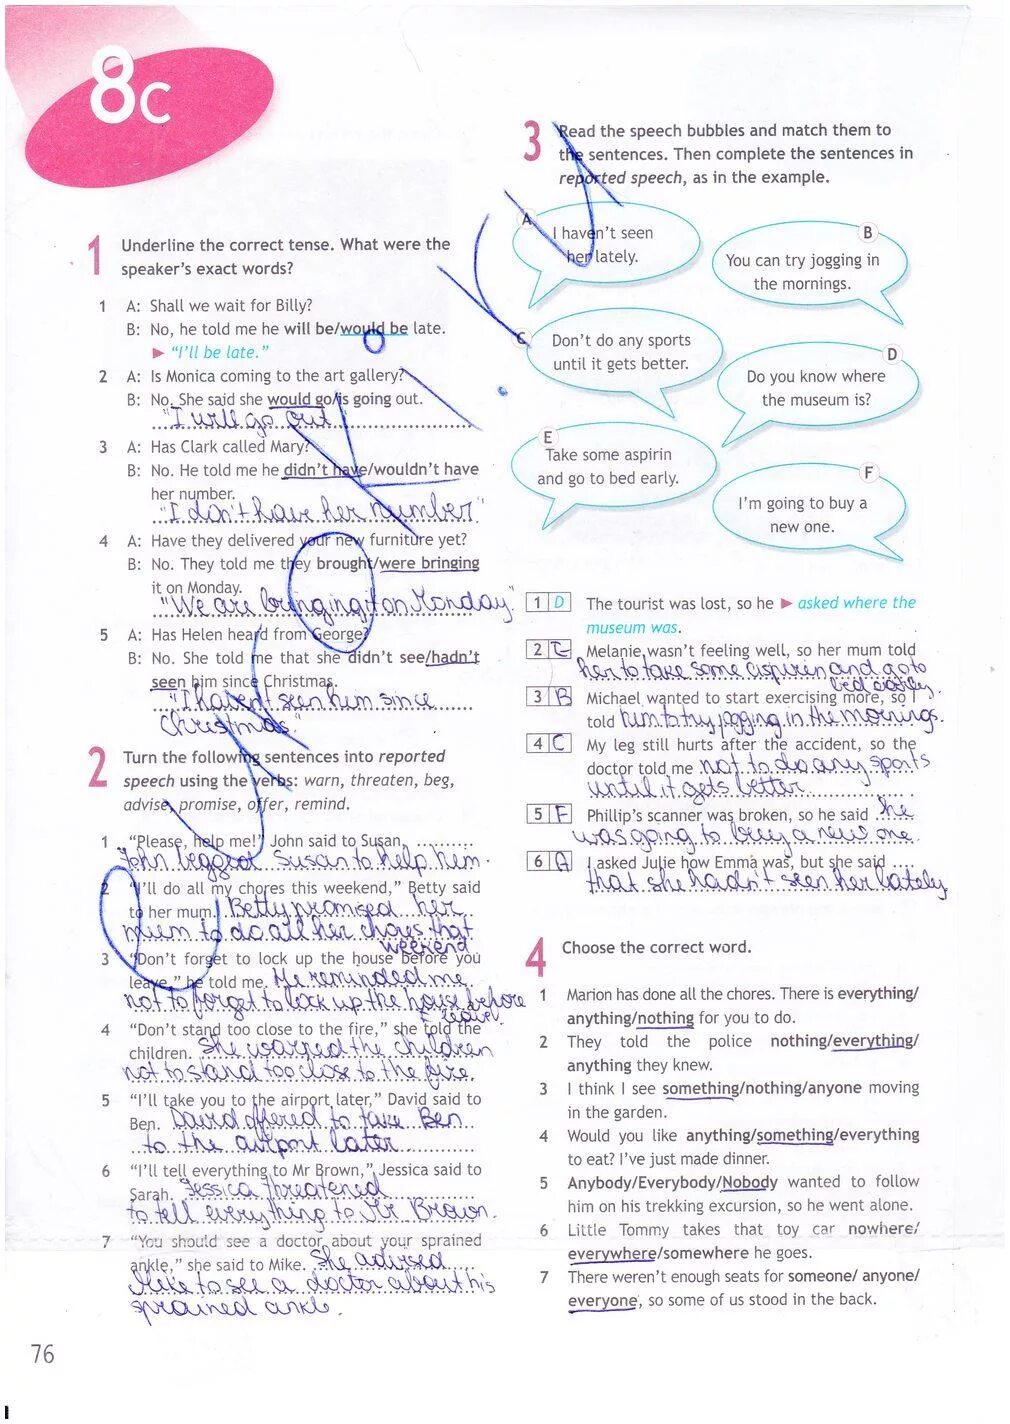 8c
1 Underline the correct tense. What were the
speaker's exact words?
1 A: Shall we wait for Billy?
B: No, he told me he will be/would be late.
► "I'll be late."
2 A: Is Monica coming to the art gallery?
B: No. She said she would go/is going out.
"I will go out"
3 A: Has Clark called Mary?
B: No. He told me he didn't have/wouldn't have
her number.
"I don't have her number"
4 A: Have they delivered your new furniture yet?
B: No. They told me they brought/were bringing
it on Monday.
"We are bringing it on Monday."
5 A: Has Helen heard from George?
B: No. She told me that she didn't see/hadn't
seen him since Christmas.
"I haven't seen him since
Christmas."
2 Turn the following sentences into reported
speech using the verbs: warn, threaten, beg,
advise, promise, offer, remind.
1 "Please, help me!" John said to Susan.
John begged Susan to help him.
2 "I'll do all my chores this weekend," Betty said
to her mum. Betty promised her
mum to do all her chores that
weekend
3 "Don't forget to lock up the house before you
leave," he told me. He reminded me
not to forget to lock up the house before
I leave.
4 "Don't stand too close to the fire," she told the
children. She warned the children
not to stand too close to the fire.
5 "I'll take you to the airport later," David said to
Ben. David offered to take Ben
to the airport later
6 "I'll tell everything to Mr Brown," Jessica said to
Sarah. Jessica threatened
to tell everything to Mr Brown.
7 "You should see a doctor about your sprained
ankle," she said to Mike. She advised
Mike to see a doctor about his
sprained ankle.
76
3 Read the speech bubbles and match them to
the sentences. Then complete the sentences in
reported speech, as in the example.
A
I haven't seen
her lately.
B
You can try jogging in
the mornings.
C
Don't do any sports
until it gets better.
D
Do you know where
the museum is?
E
Take some aspirin
and go to bed early.
F
I'm going to buy a
new one.
1 D The tourist was lost, so he ► asked where the
museum was.
2 E Melanie wasn't feeling well, so her mum told
her to take some aspirin and go to
bed early.
3 B Michael wanted to start exercising more, so I
told him to try jogging in the mornings.
4 C My leg still hurts after the accident, so the
doctor told me not to do any sports
until it gets better
5 F Phillip's scanner was broken, so he said he
was going to buy a new one.
6 A I asked Julie how Emma was, but she said
that she hadn't seen her lately
4 Choose the correct word.
1 Marion has done all the chores. There is everything/
anything/nothing for you to do.
2 They told the police nothing/everything/
anything they knew.
3 I think I see something/nothing/anyone moving
in the garden.
4 Would you like anything/something/everything
to eat? I've just made dinner.
5 Anybody/Everybody/Nobody wanted to follow
him on his trekking excursion, so he went alone.
6 Little Tommy takes that toy car nowhere/
everywhere/somewhere he goes.
7 There weren't enough seats for someone/ anyone/
everyone, so some of us stood in the back.